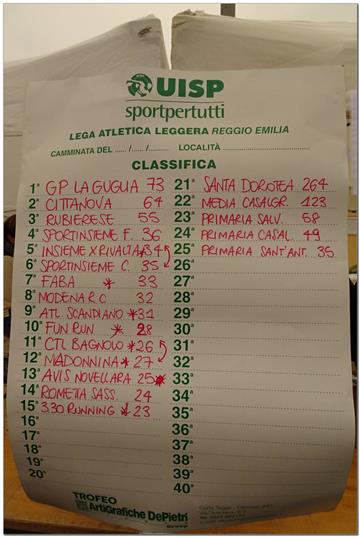 UISP
sportpertutti
LEGA ATLETICA LEGGERA REGGIO EMILIA
CAMMINATA DEL ...../...../..... LOCALITÀ
CLASSIFICA
1° GP LA GUGLIA 73
2° CITTANOVA 64
3° RUBIERESE 55
4° SPORTINSIEME F. 36
5° INSIEME X RIVALTA 34
6° SPORTINSIEME C. 35
7° FABA * 33
8° MODENA RC 32
9° ATL. SCANDIANO * 31
10° FUN RUN * 28
11° CTL BAGNOLO * 26
12° MADONNINA * 27
13° AVIS NOVELLARA 25 *
14° ROMETTA SASS. 24
15° 330 RUNNING * 23
16°
17°
18°
19°
20°
21° SANTA DOROTEA 264
22° MEDIA CASALGR. 123
23° PRIMARIA SALV. 58
24° PRIMARIA CASAL. 49
25° PRIMARIA SANT'ANT. 35
26°
27°
28°
29°
30°
31°
32°
33°
34°
35°
36°
37°
38°
39°
40°
TROFEO
ArtiGrafiche DePietri